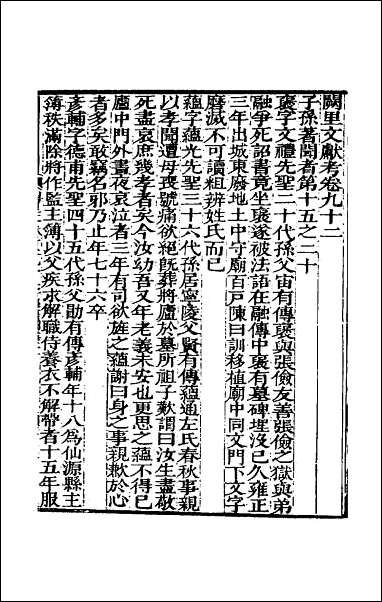 闕里文獻考卷九十二
子孫著聞者第十五之二十
褒字文禮先聖二十代孫父宙有傳褒與張儉友善張儉之獄與弟
融爭死詔書竟坐褒遂被法語在融傳中褒有墓碑埋沒已久雍正
三年出城東廢地土中守廟百戶陳曰訓移植廟中同文門下文字
磨滅不可讀粗辨姓氏而已
蘊字蘊光先聖三十六代孫居寧陵父賢有傳蘊通左氏春秋事親
以孝聞遭母喪號痛欲絕旣葬將廬於墓所祖子歎謂曰汝生盡敬
死盡哀庶幾孝者矣今汝幼吾又年老義未安也更思之蘊不得已
廬中門外晝夜哀泣者三年有司欲旌之蘊謝曰身之事親歉於心
者多矣敢竊名邪乃止年七十六卒
彥輔字德甫先聖四十五代孫父勖有傳彥輔年十八為仙源縣主
簿秩滿除將作監主簿以父疾求解職侍養衣不解帶者十五年服